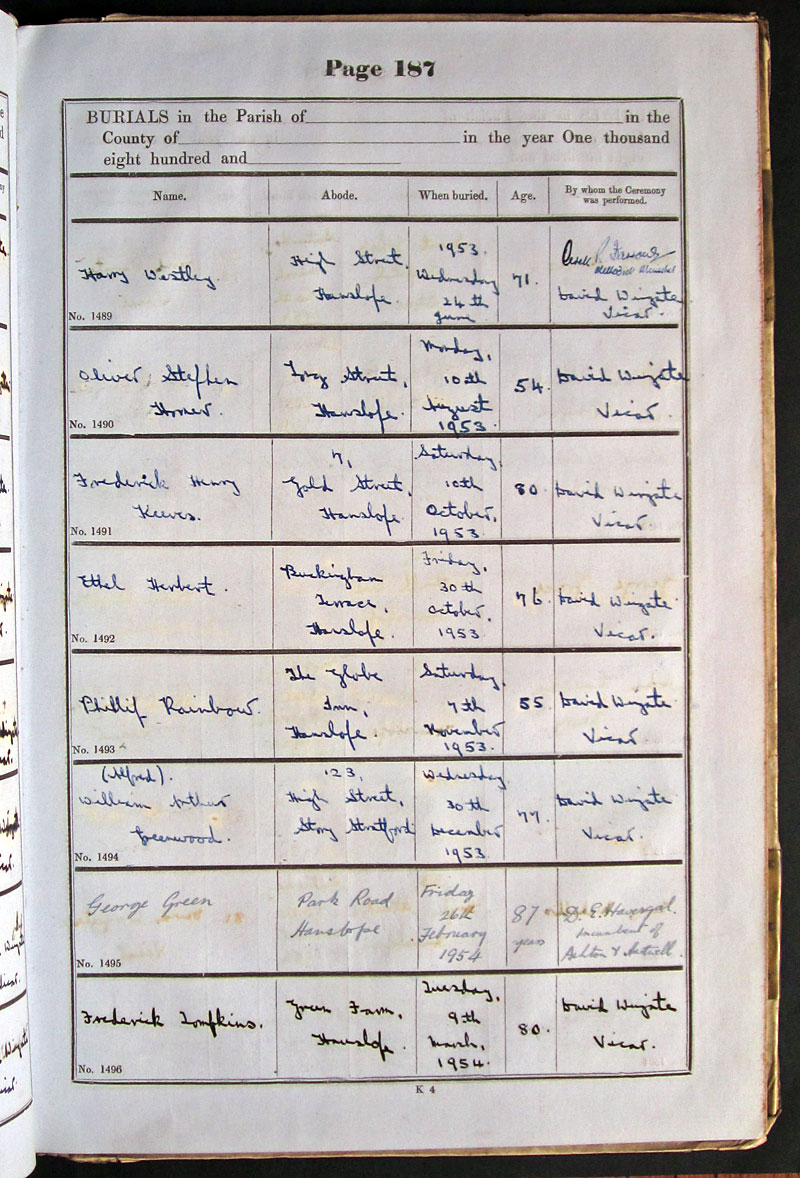 Page 187
BURIALS in the Parish of in the
County of in the year One thousand
eight hundred and
Name. Abode. When buried. Age. By whom the Ceremony was performed.
Harry Westley.
High Street.
Hanslope.
1953.
Wednesday
24th
June
71.
Derek R.
Methodist
David Wingate
Vicar.
No. 1489
Oliver Stephen
Horner.
Long Street,
Hanslope.
Monday,
10th
August
1953.
54.
David Wingate
Vicar.
No. 1490
Frederick Henry
Keeves.
7,
Gold Street,
Hanslope.
Saturday,
10th
October,
1953.
80.
David Wingate
Vicar.
No. 1491
Ethel Herbert.
Buckingham
Terrace,
Hanslope.
Friday,
30th
October,
1953
76.
David Wingate.
Vicar.
No. 1492
Phillip Rainbow.
The Globe
Inn,
Hanslope.
Saturday,
7th
November
1953.
55.
David Wingate.
Vicar.
No. 1493
(Alfred).
William Arthur
Greenwood.
123,
High Street,
Stony Stratford
Wednesday,
30th
December
1953.
77.
David Wingate
Vicar.
No. 1494
George Green
Park Road
Hanslope.
Friday
26th
February
1954
87
years
D. E. Havergal.
Incumbent of
Ashton & Hartwell.
No. 1495
Frederick Tompkins.
Green Farm,
Hanslope.
Tuesday,
9th
March,
1954.
80.
David Wingate
Vicar.
No. 1496
K 4